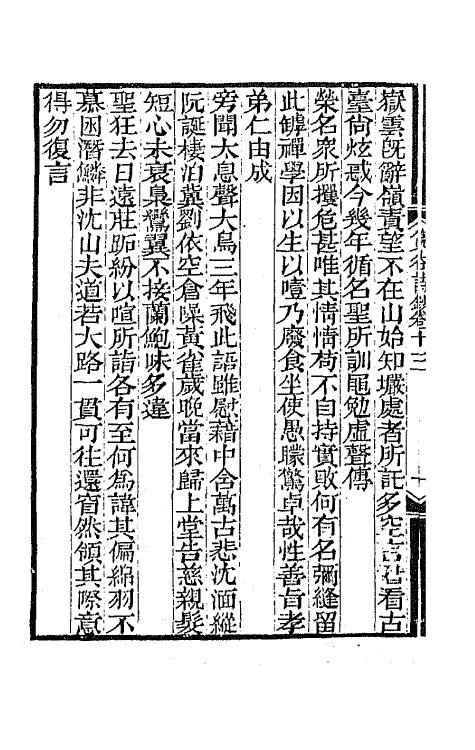 嶽雲旣辭嶺責望不在山始知處者所託多空言君看古
臺尙炫惑今幾年循名聖所訓黽勉虛聲傳
榮名衆所攖危甚唯其情情苟不自持實敢何有名彌縫留
此罅禪學因以生以噎乃廢食坐使愚矇驚卓哉性善旨孝
弟仁由成
旁聞太息聲大鳥三年飛此語雖慰藉中含萬古悲沈湎縱
阮誕棲泊冀劉依空倉噪黃雀歲晚當來歸上堂告慈親髮
短心未衰梟鸞翼不接蘭鮑味多違
聖狂去日遠莊跖紛以喧所詣各有至何爲諱其偏綿羽不
慕囦潛鱗非沈山夫道若大路一貫可往還窅然領其際意
得勿復言